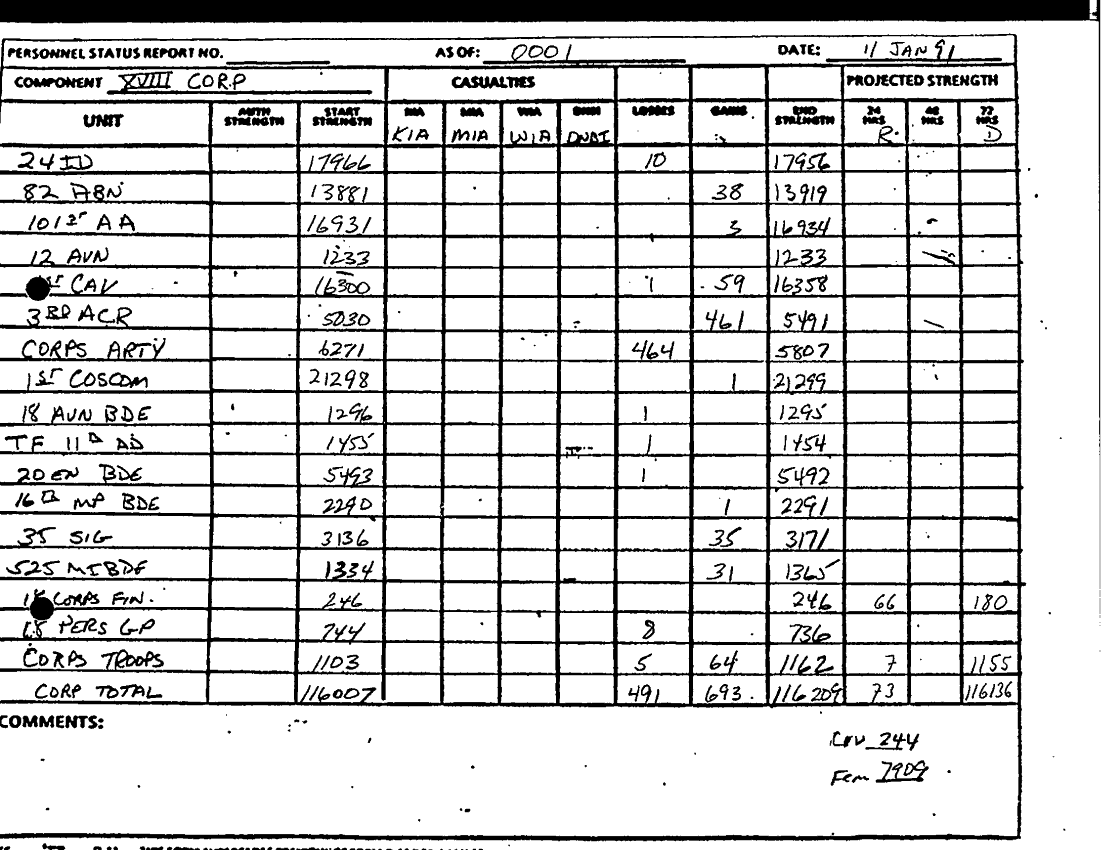 PERSONNEL STATUS REPORT NO. AS OF: 0001 DATE: 11 JAN 91
COMPONENT XVIII CORP CASUALTIES PROJECTED STRENGTH
UNIT AUTH STRENGTH START STRENGTH KIA MIA WIA DNBI LOSSES GAINS END STRENGTH 24 HRS 48 HRS 72 HRS
R D
24 ID 17966 10 17956
82 ABN 13881 38 13919
101ST AA 16931 3 16934
12 AVN 1233 1233
ST CAV 16300 1 59 16358
3RD ACR 5030 461 5491
CORPS ARTY 6271 464 5807
1ST COSCOM 21298 1 21299
18 AVN BDE 1296 1 1295
TF 11th AD 1455 1 1454
20 EN BDE 5493 1 5492
16th MP BDE 2290 1 2291
35 SIG 3136 35 3171
525 MI BDE 1334 31 1365
18 CORPS FIN. 246 246 66 180
18 PERS GP 744 8 736
CORPS TROOPS 1103 5 64 1162 7 1155
CORP TOTAL 116007 491 693 116209 73 116136
COMMENTS:
CIV 244
Fem 7909